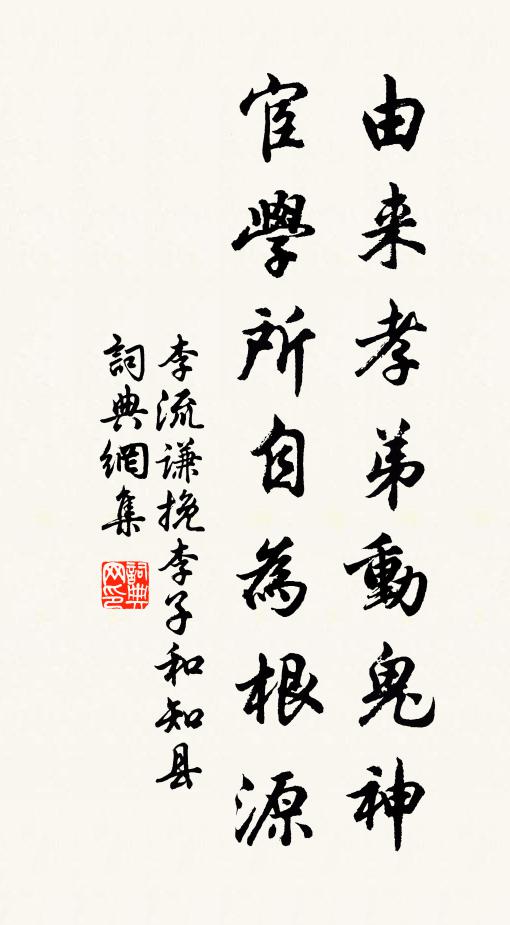 由来孝弟動鬼神
宦學所自為根源
李流谦挽李子和知县
詞典網集
詞典网印